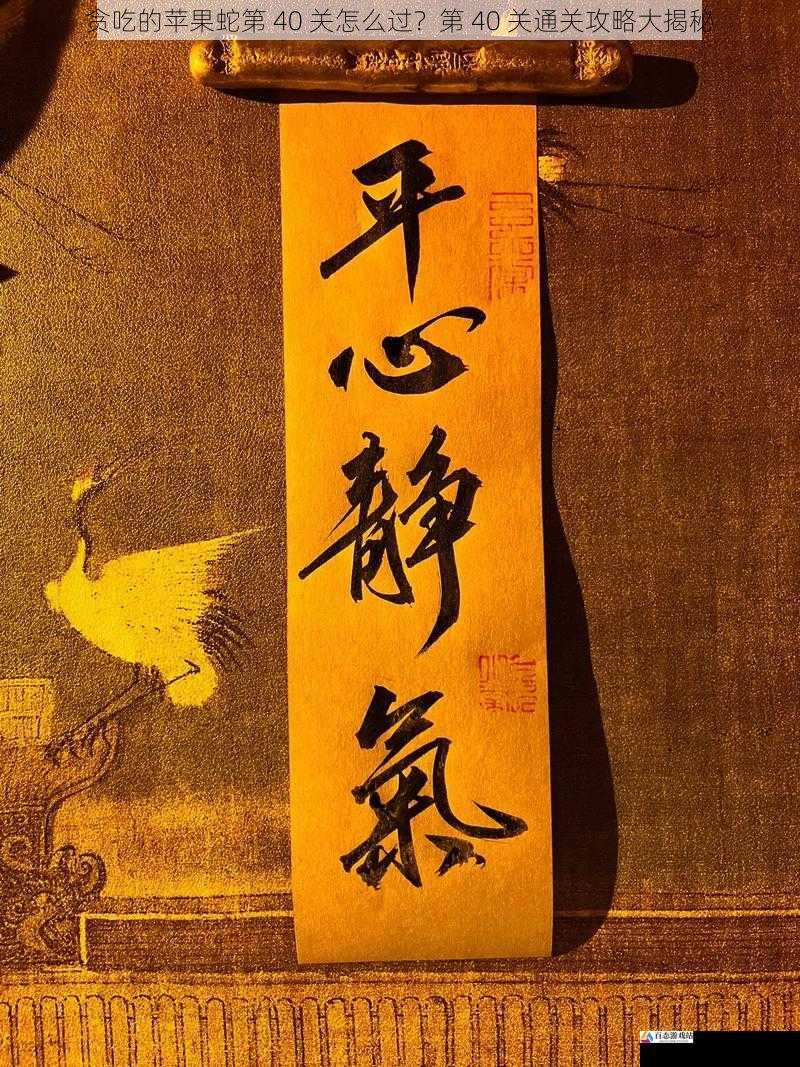 贪吃的苹果蛇第 40 关怎么过？第 40 关通关攻略大揭秘
平
心
靜
氣
百态游戏站